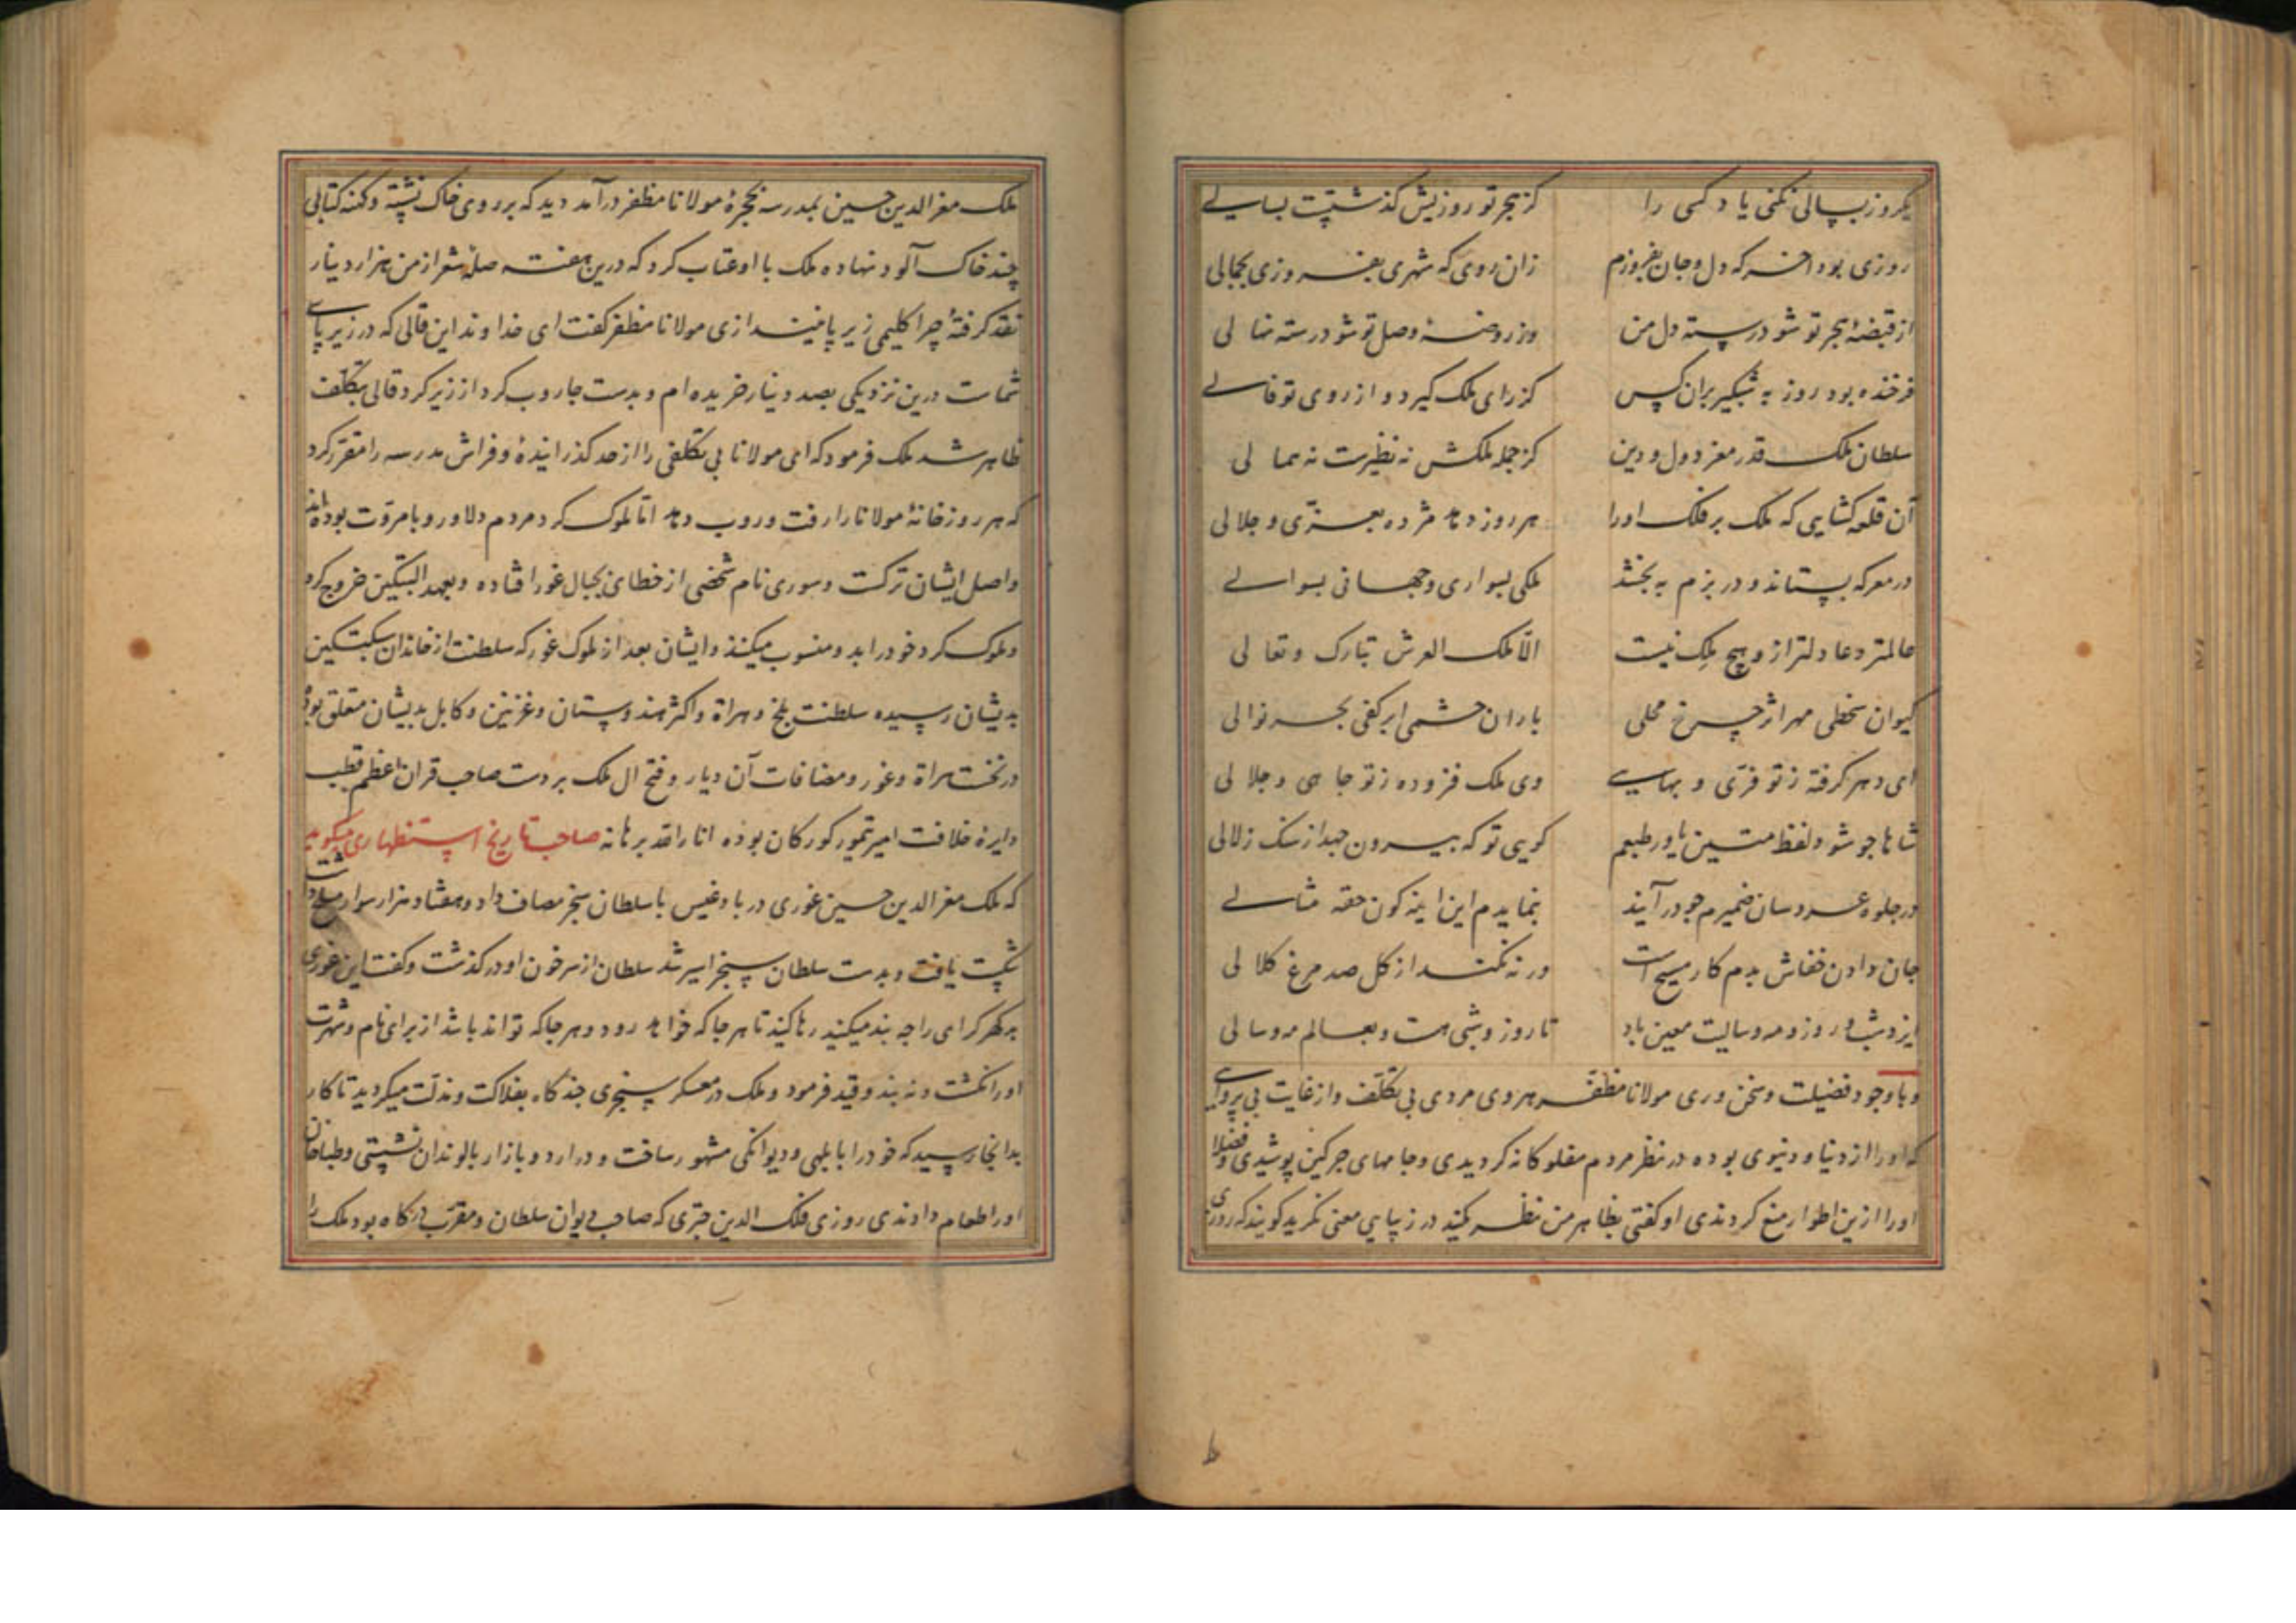 یکروز بسالی نکنی یاد کسی را کز هجر تو روزیش گذشتست بسالی
روزی بود اخر که دل و جان بفروزم زان روی که شهری بفروزی بجمالی
از قبضهٔ هجر تو شود رسته دل من وز روضهٔ وصل تو شود رسته نهالی
فرخنده بود روز به شبگیر بران کس کز رای ملک گیرد و از روی تو فالی
سلطان ملک قدر معز دول و دین کز جمله ملکش نه نظیرست نه همالی
آن قلعه کشایی که ملک بر فلک اورا هر روز دهد مژده بعزّی و جلالی
در معرکه بستاند و در بزم به بخشد ملکی بسواری و جهانی بسوالی
عالمتر و عادلتر ازو هیچ ملک نیست الا ملک العرش تبارک و تعالی
کیوان سخطی مهر اثر چرخ محلی باران حشمی ابر کفی بحر نوالی
ای دهر کرفته ز تو فرّی و بهایی وی ملک فزوده ز تو جاهی و جلالی
شاها جو شود لفظ متین یاور طبعم کویی تو که بیرون جهد از سنک زلالی
در جلوه عروسان ضمیرم جو در آیند بنمایدم این اینه کون حقه مثالی
جان دادن خفاش بدم کار مسیح است ورنه نکند از کل صد مرغ کلالی
ایزد بشب و روز و مه و سالت معین باد تا روز و شبی هست و بعالم مه و سالی
و با وجود فضیلت و سخن وری مولانا مظفر هروی مردی بی تکلّف و از غایت بی پروایی
که اورا از دنیا و دنیوی بوده در نظر مردم مفلوکانه کردیدی و جامهای جرکین پوشیدی و فضلا
اورا ازین اطوار منع کردندی او کفتی بظاهر من نظر مکنید در زیبایی معنی نکرید کویند که روزی
ملک معز الدین حسین بمدرسه بحجرهٔ مولانا مظفر در آمد دید که بر روی خاک نشسته و کهنه کتابی
چند خاک آلود نهاده ملک با او عتاب کرد که درین هفته صلهٔ شعر از من هزار دینار
نقد کرفتهٔ چرا کلیمی زیر پا نیندازی مولانا مظفر کفت ای خداوند این قالی که در زیر پای
شماست درین نزدیکی بصد دینار خریده ام و بدست جاروب کرد از زیر کرد قالی بتکلّف
ظاهر شد ملک فرمود که ای مولانا بی تکلفی را از حد کذرانیدهٔ و فراش مدرسه را مقرر کرد
که هر روز خانهٔ مولانا را رفت و روب دهد اما ملوک کرد مردم دلاور و با مروّت بوده اند
و اصل ایشان ترکست و سوری نام شخصی از خطای بجبال غور افتاده و بعهد البتکین خروج کرد
و ملوک کرد خود را بدو منسوب میکنند و ایشان بعد از ملوک غور که سلطنت از خاندان سبکتکین
بدیشان رسیده سلطنت بلخ و هراة و اکثر هندوستان و غزنین و کابل بدیشان متعلق بود
در تخت هراة و غور و مضافات آن دیار و فتح ال ملک بر دست صاحب قران اعظم قطب
دایرهٔ خلافت امیر تیمور کورکان بوده انار الله برهانه صاحب تاریخ استظهاری میکوید
که ملک معز الدین حسین غوری در بادغیس با سلطان سنجر مصاف داد و هفتاد هزار سوار مسلح داشت
شکست یافت و بدست سلطان سنجر اسیر شد سلطان از سر خون او در کذشت و کفت این غوری
را چه بند میکنید رها کنید تا هر جا که خواهد رود و هر جا که تواند باشد از برای نام و شهرت
اورا نکشت و نه بند و قید فرمود و ملک در معسکر سنجری چند کاه بفلاکت و مذلّت میکردید تا کار
بدانجا رسید که خود را بابلهی و دیوانکی مشهور ساخت و در اردو بازار با لوندان نشستی و طباخان
اورا طعام دادندی روزی فلک الدین جتری که صاحب دیوان سلطان و مقرب درکاه بود ملک را